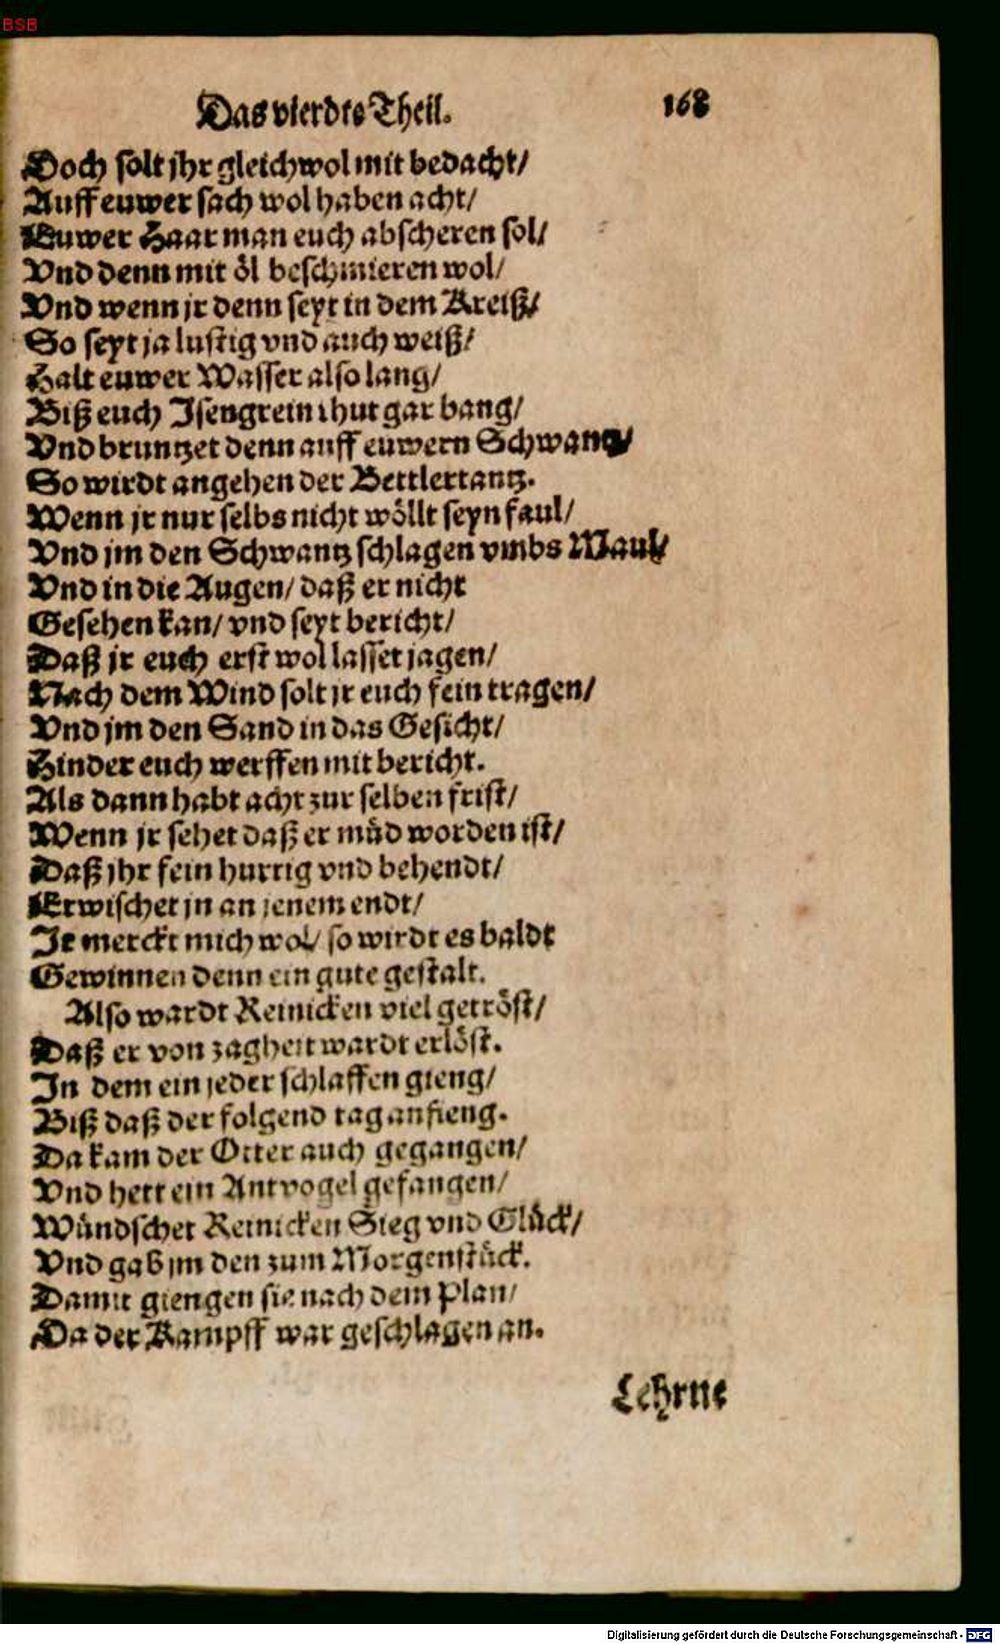 BSB
Das vierdte Theil. 168
Doch solt jhr gleichwol mit bedacht/
Auff euwer sach wol haben acht/
Euwer Haar man euch abscheren sol/
Vnd denn mit öl beschmieren wol/
Vnd wenn jr denn seyt in dem Kreiß/
So seyt ja lustig vnd auch weiß/
Halt euwer Wasser also lang/
Biß euch Isengrein thut gar bang/
Vnd bruntzet denn auff euwern Schwantz/
So wirdt angehen der Bettlertantz.
Wenn jr nur selbs nicht wöllt seyn faul/
Vnd jm den Schwantz schlagen vmbs Maul/
Vnd in die Augen/ daß er nicht
Gesehen kan/ vnd seyt bericht/
Daß jr euch erst wol lasset jagen/
Nach dem Wind solt jr euch fein tragen/
Vnd jm den Sand in das Gesicht/
Hinder euch werffen mit bericht.
Als dann habt acht zur selben frist/
Wenn jr sehet daß er müd worden ist/
Daß jhr fein hurtig vnd behendt/
Erwischet jn an jenem endt/
Ir merckt mich wol/ so wirdt es baldt
Gewinnen denn ein gute gestalt.
Also wardt Reinicken viel getröst/
Daß er von zagheit wardt erlöst.
In dem ein jeder schlaffen gieng/
Biß daß der folgend tag anfieng.
Da kam der Otter auch gegangen/
Vnd hett ein Antvogel gefangen/
Wündschet Reinicken Sieg vnd Glück/
Vnd gab jm den zum Morgenstück.
Damit giengen sie nach dem Plan/
Da der Kampff war geschlagen an.
Lehrne
Digitalisierung gefördert durch die Deutsche Forschungsgemeinschaft - DFG